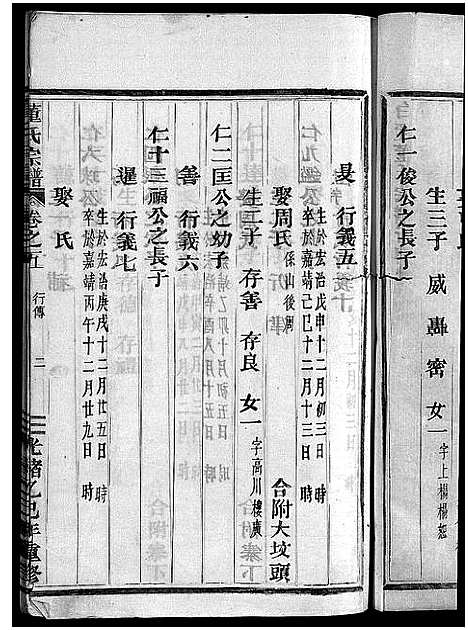 生三子 威 轟 密 女一 字上楊楊恕
仁一俊公之長子
旻 行義五
生於宏治戊申十二月初三日 時
卒於嘉靖己巳十二月十三日 時
娶周氏 係山後周
合附大坟頭
生二子 存善 存良 女一 字高川樓廣
仁二匡公之幼子
善 行義六
仁十三福公之長子
暹 行義七
生於宏治庚戌十二月廿五日 時
卒於嘉靖丙午十二月廿九日 時
娶 氏
董氏宗譜 卷之五 行傳 二 光緒乙巳年重修